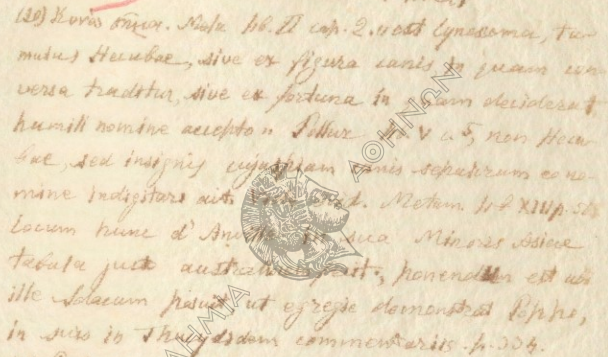 (20) Κυνὸς σῆμα. Mela lib. II cap. 2. „est Cynossema, tu-
mulus Hecubae, sive ex figura canis in quam con-
versa traditur, sive ex fortuna in quam deciderat
humili nomine accepto" Pollux V c. 5, non Hecu-
bae, sed insignis cujuspiam canis sepulcrum eo no-
mine indigitari ait. Metam. lib XIII p.
locum hunc d' in sua Minoris Asiae
tabula ponendum est ubi
ille posuit ut egregie demonstrat Poppo,
in suis in Thucydidem commentariis. p. 334.
ΑΘΗΝΩΝ